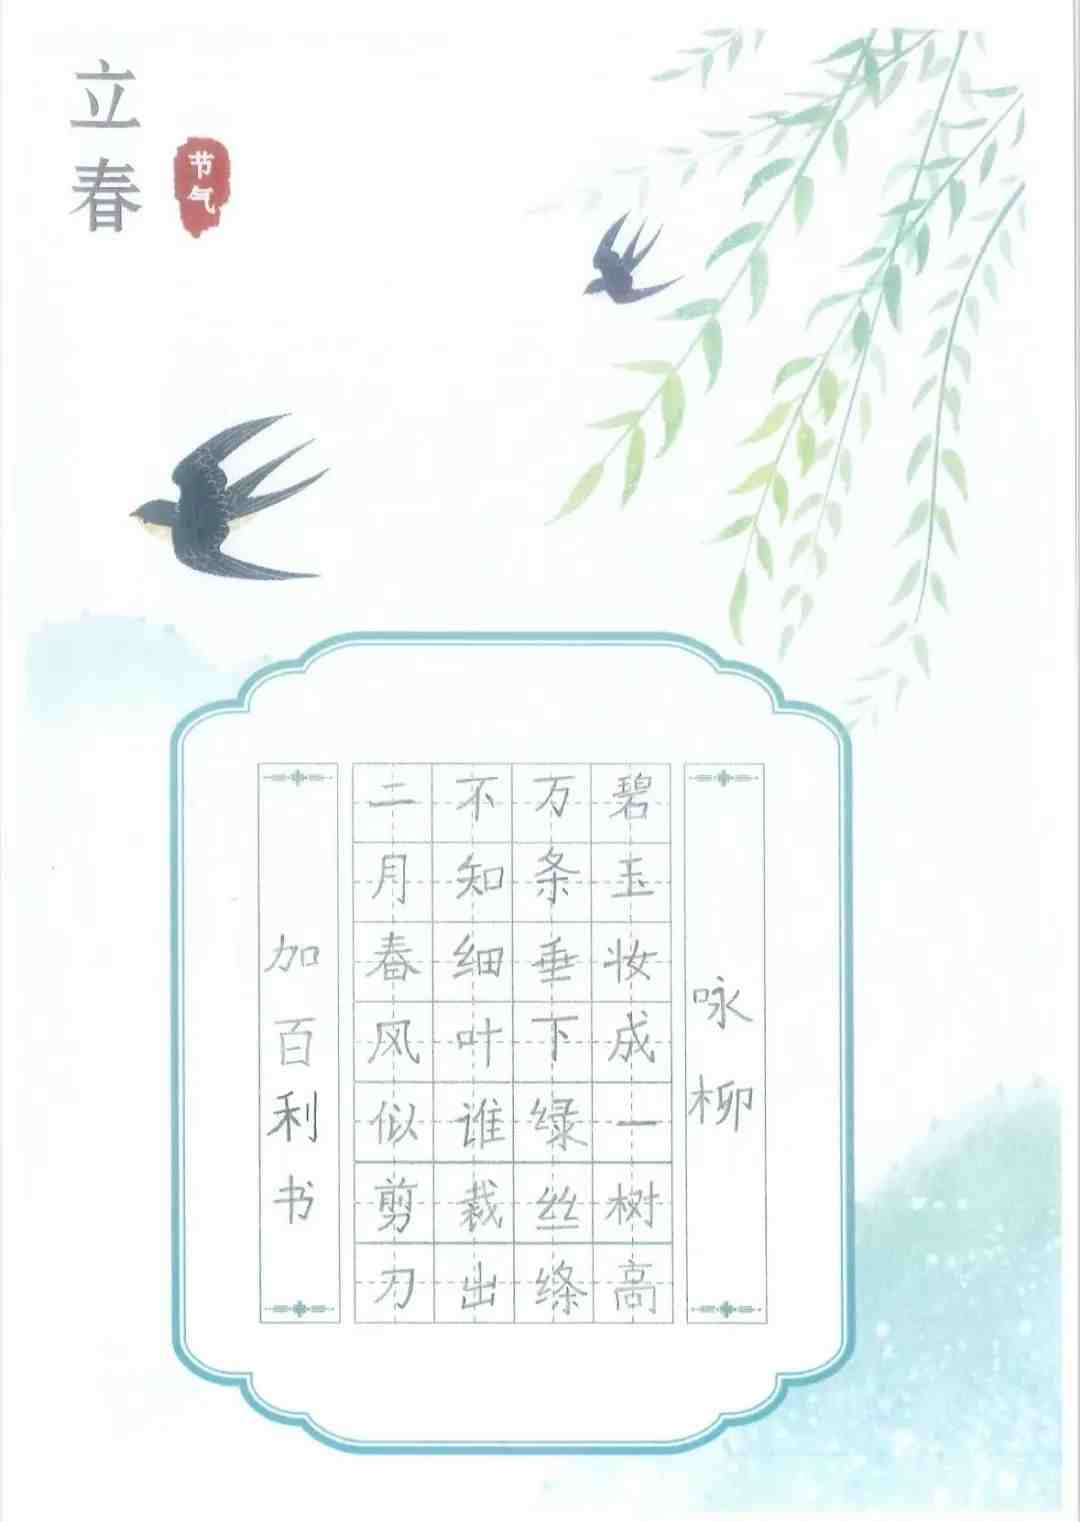 立春
节气
咏柳
碧玉妆成一树高
万条垂下绿丝绦
不知细叶谁裁出
二月春风似剪刀
加百利书